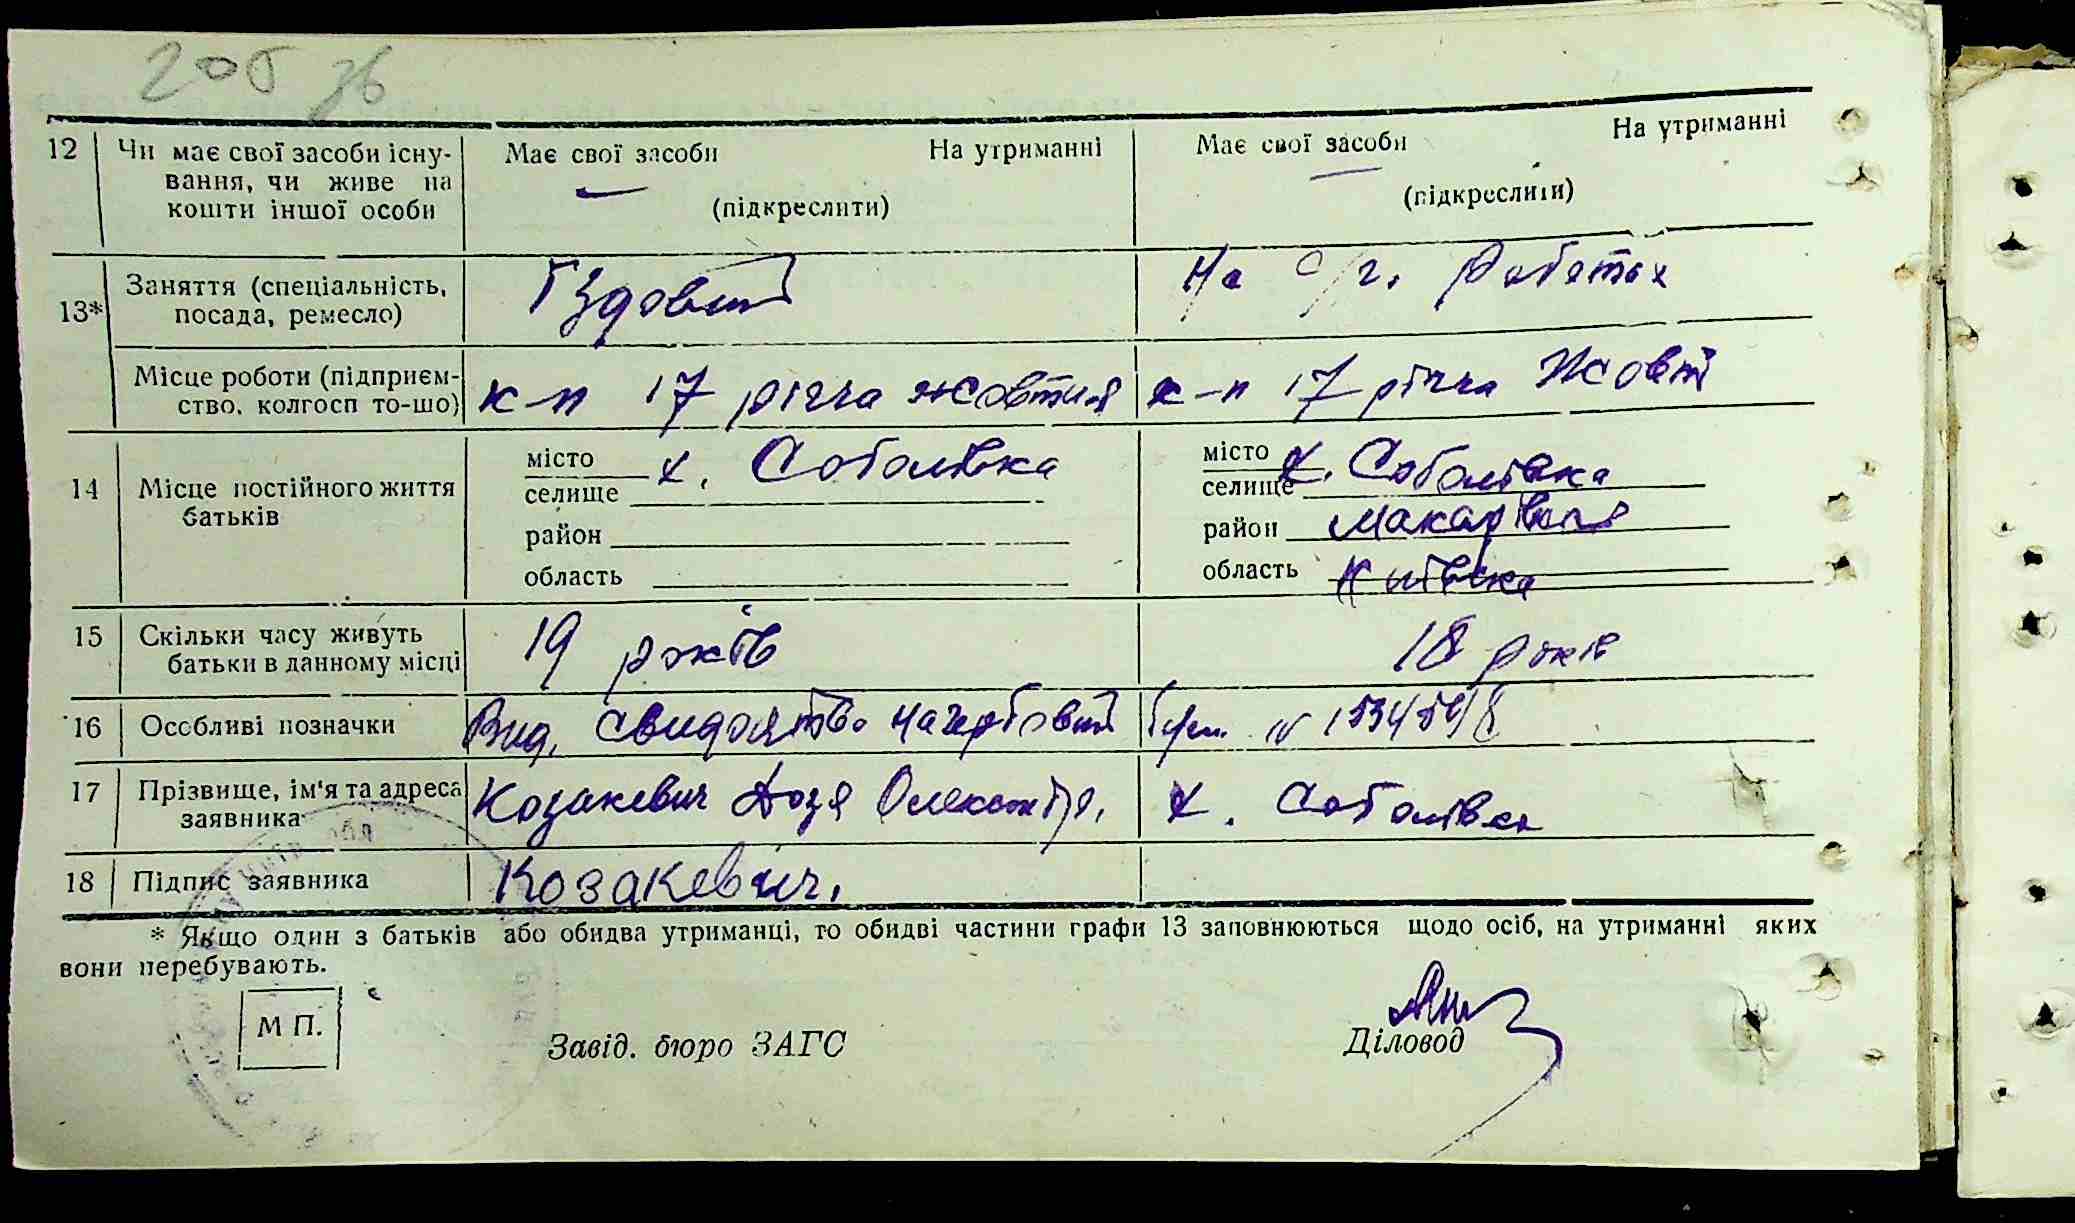 205 зв
12 Чи має свої засоби існу- Має свої засоби На утриманні Має свої засоби На утриманні
вання, чи живе на
кошти іншої особи (підкреслити) (підкреслити)
13* Заняття (спеціальність, Їздовий На с/г. роботах
посада, ремесло)
Місце роботи (підприєм- к-п 17 річча жовтня к-п 17 річча Жовт
ство, колгосп то-що)
14 Місце постійного життя місто х. Соболівка місто х. Соболівка
батьків селище селище
район район Макарівськ
область область Київська
15 Скільки часу живуть 19 років 18 років
батьки в данному місці
16 Особливі позначки Вид. свидоятво на гербовий № 1534
17 Прізвище, ім'я та адреса Козакевич Дозя Олександр. х. Соболівка
заявника
18 Підпис заявника Козакевич.
* Якщо один з батьків або обидва утриманці, то обидві частини графи 13 заповнюються щодо осіб, на утриманні яких
вони перебувають.
М П.
Завід. бюро ЗАГС Діловод